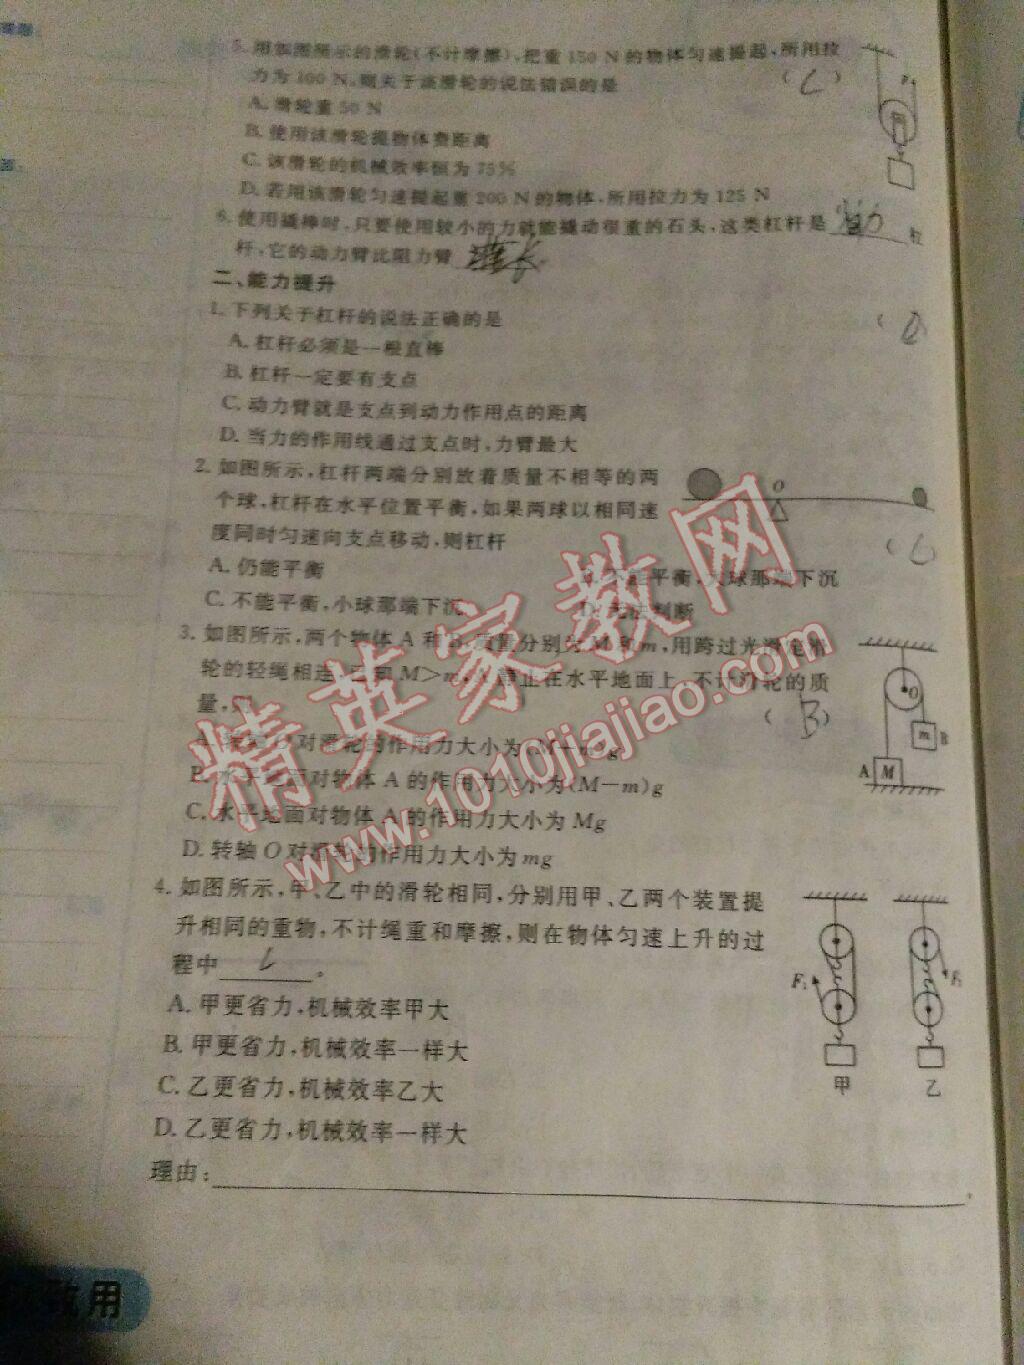 5. 用如图所示的滑轮(不计摩擦),把重 150 N 的物体匀速提起,所用拉
力为 100 N,则关于该滑轮的说法错误的是 ( C )
A. 滑轮重 50 N
B. 使用该滑轮提物体费距离
C. 该滑轮的机械效率恒为 75%
D. 若用该滑轮匀速提起重 200 N 的物体,所用拉力为 125 N
6. 使用撬棒时,只要使用较小的力就能撬动很重的石头,这类杠杆是 省力 杠
杆,它的动力臂比阻力臂 长
二、能力提升
1. 下列关于杠杆的说法正确的是 ( )
A. 杠杆必须是一根直棒
B. 杠杆一定要有支点
C. 动力臂就是支点到动力作用点的距离
D. 当力的作用线通过支点时,力臂最大
2. 如图所示,杠杆两端分别放着质量不相等的两
个球,杠杆在水平位置平衡,如果两球以相同速
度同时匀速向支点移动,则杠杆 ( C )
O
A. 仍能平衡 B. 不能平衡,大球那端下沉
C. 不能平衡,小球那端下沉 D. 无法判断
3. 如图所示,两个物体 A 和 B,质量分别为 M 和 m,用跨过光滑定滑
轮的轻绳相连,已知 M>m,A 静止在水平地面上,不计滑轮的质
量,则 ( B )
A. 转轴 O 对滑轮的作用力大小为(M-m)g
B. 水平地面对物体 A 的作用力大小为(M-m)g
C. 水平地面对物体 A 的作用力大小为 Mg
D. 转轴 O 对滑轮的作用力大小为 mg
O
m B
A M
4. 如图所示,甲、乙中的滑轮相同,分别用甲、乙两个装置提
升相同的重物,不计绳重和摩擦,则在物体匀速上升的过
程中______。
A. 甲更省力,机械效率甲大
B. 甲更省力,机械效率一样大
C. 乙更省力,机械效率乙大
D. 乙更省力,机械效率一样大
理由:
F₁
甲 乙
致用
精英家教网
www.1010jiajiao.com